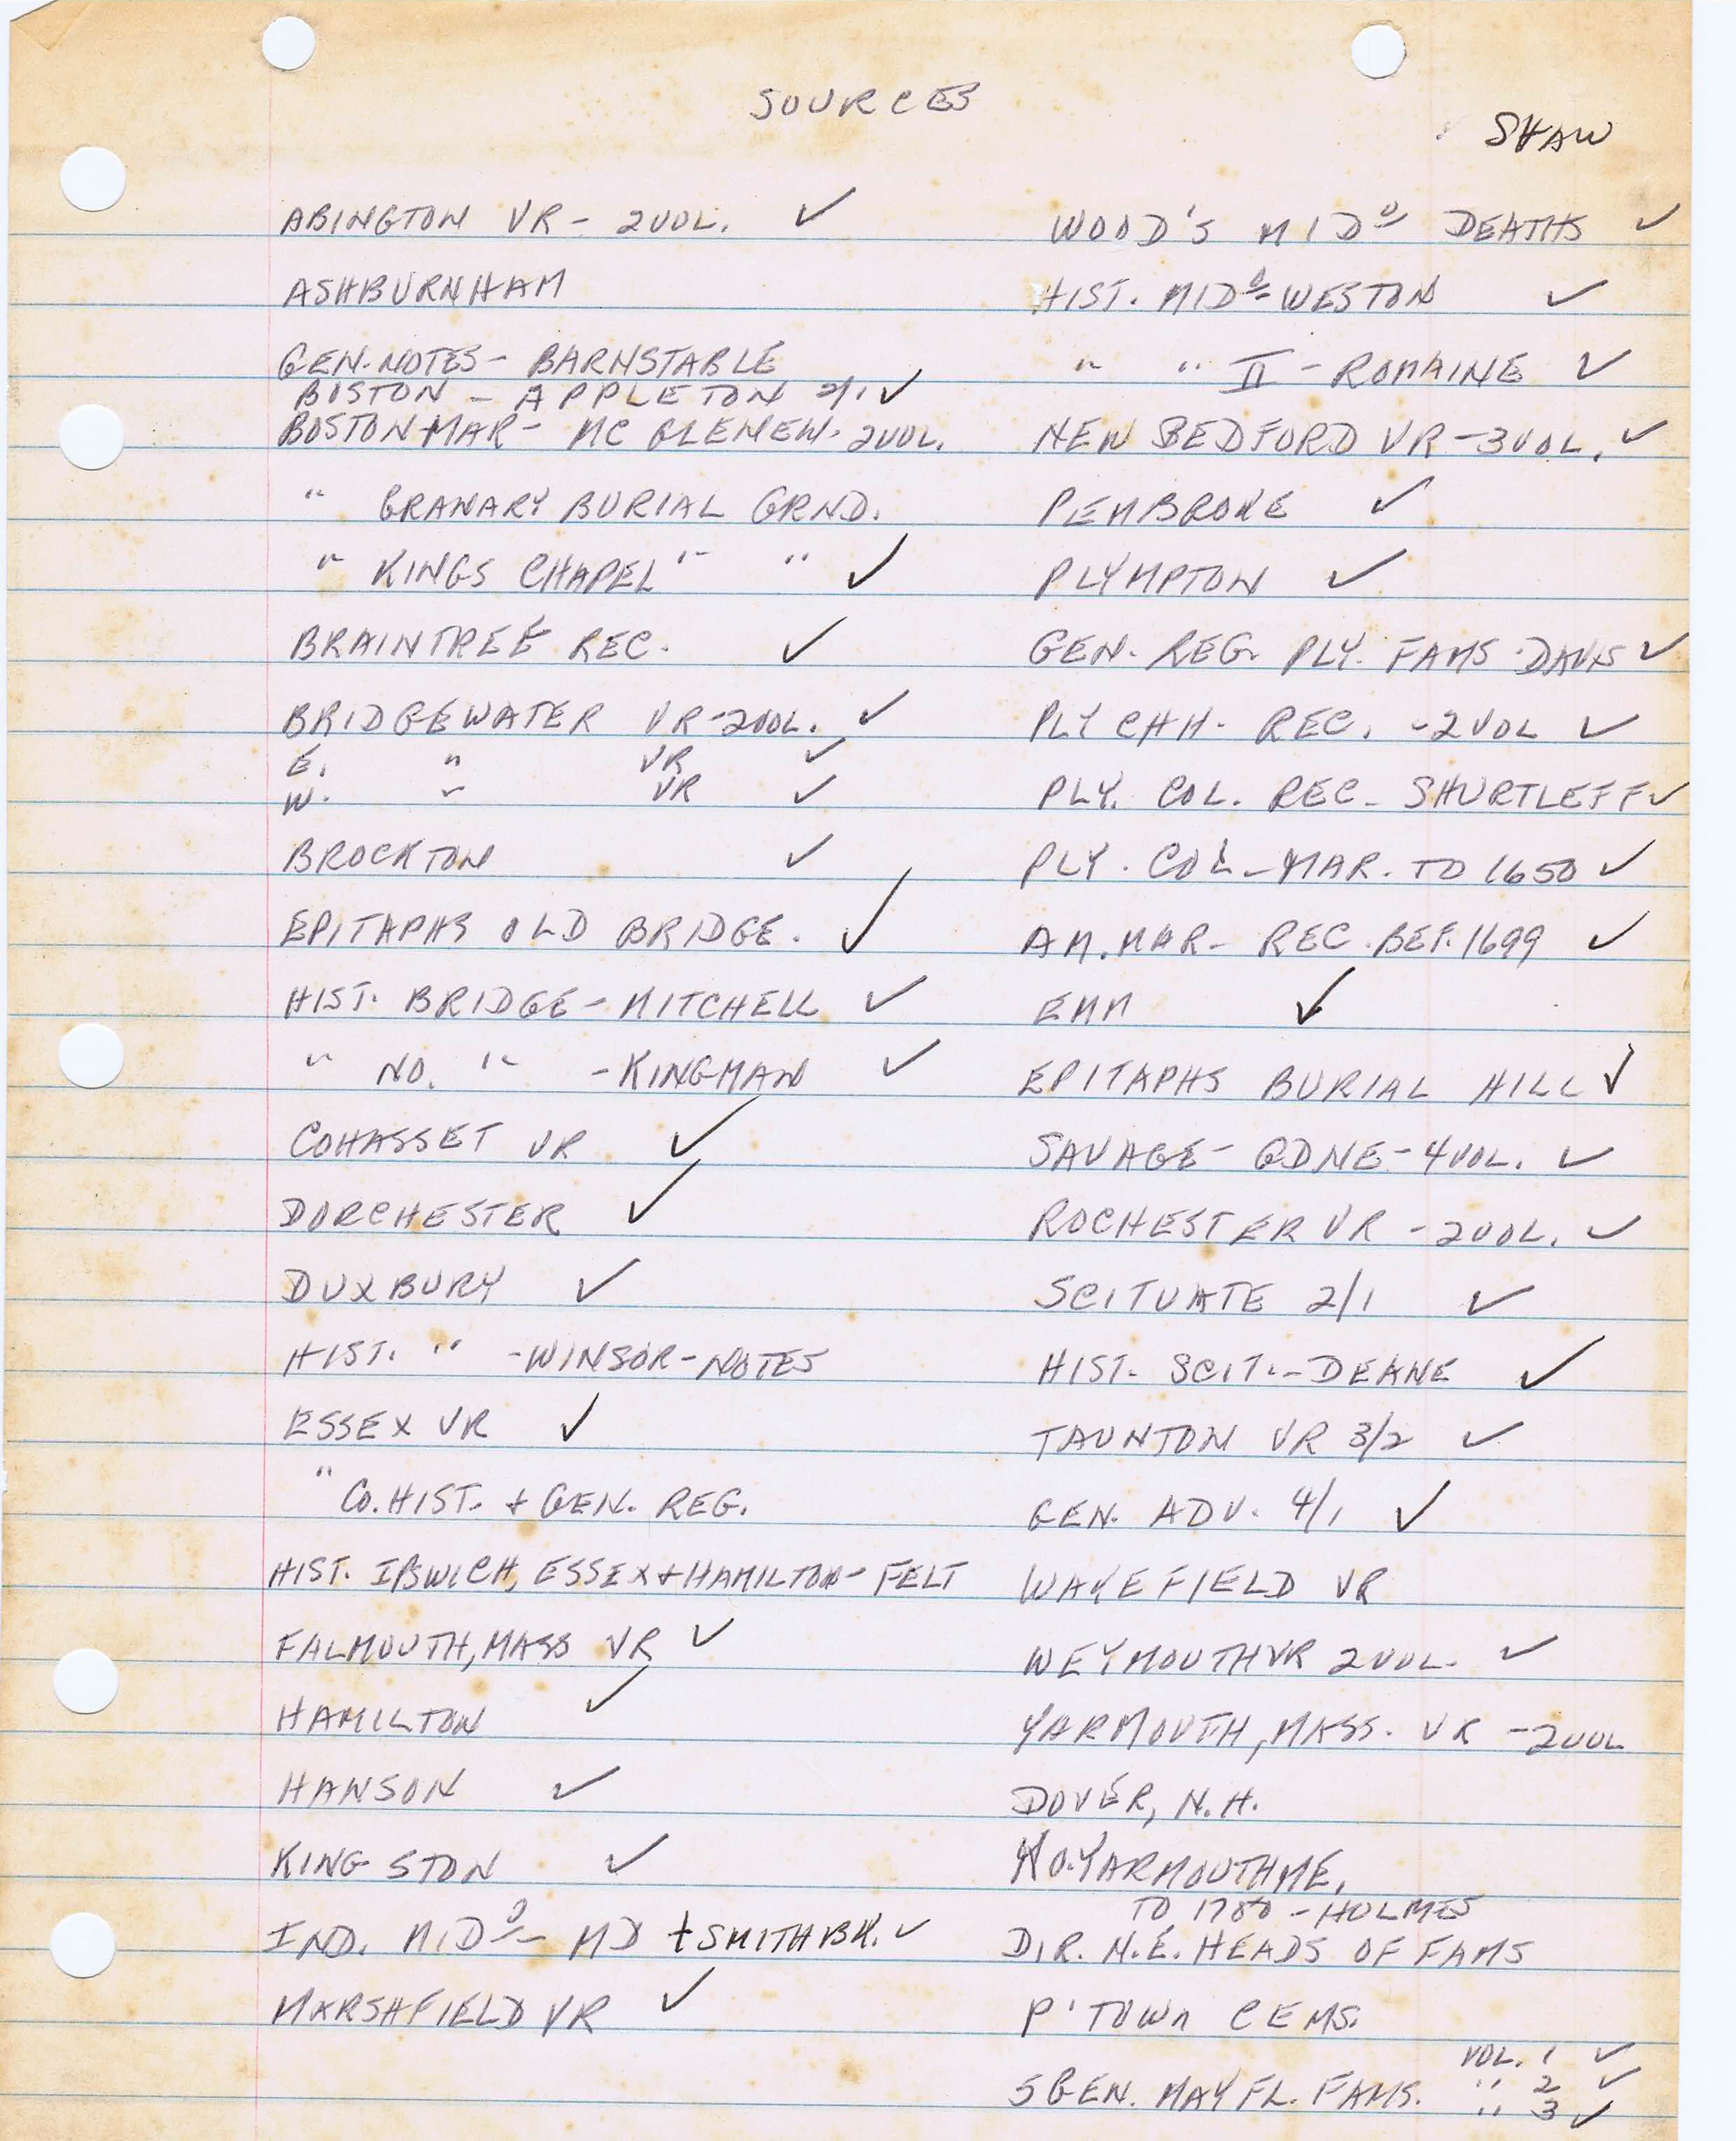 SOURCES
SHAW
ABINGTON VR - 2 VOL. ✓
ASHBURNHAM
GEN. NOTES - BARNSTABLE
BOSTON - APPLETON 2/1 ✓
BOSTON MAR - MC GLENEW. 2 VOL.
" GRANARY BURIAL GRND.
" KINGS CHAPEL " " ✓
BRAINTREE REC. ✓
BRIDGEWATER VR - 2 VOL. ✓
E. " VR ✓
W. " VR ✓
BROCKTON ✓
EPITAPHS OLD BRIDGE. ✓
HIST. BRIDGE - MITCHELL ✓
" NO. " - KINGMAN ✓
COHASSET VR ✓
DORCHESTER ✓
DUXBURY ✓
HIST. " - WINSOR - NOTES
ESSEX VR ✓
" CO. HIST. + GEN. REG.
HIST. IPSWICH, ESSEX + HAMILTON - FELT
FALMOUTH, MASS VR ✓
HAMILTON ✓
HANSON ✓
KINGSTON ✓
IND. MIDO - MD + SMITH BK. ✓
MARSHFIELD VR ✓
WOOD'S MIDO DEATHS ✓
HIST. MIDO - WESTON ✓
" " II - ROMAINE ✓
NEW BEDFORD VR - 3 VOL. ✓
PEMBROKE ✓
PLYMPTON ✓
GEN. REG. PLY. FAMS. DAVIS ✓
PLY CHH. REC. - 2 VOL ✓
PLY. COL. REC. SHURTLEFF ✓
PLY. COL - MAR. TO 1650 ✓
AM. MAR - REC. BEF. 1699 ✓
EMM ✓
EPITAPHS BURIAL HILL ✓
SAVAGE - GDNE - 4 VOL. ✓
ROCHESTER VR - 2 VOL. ✓
SCITUATE 2/1 ✓
HIST. SCIT. - DEANE ✓
TAUNTON VR 3/2 ✓
GEN. ADV. 4/1 ✓
WAKEFIELD VR
WEYMOUTH VR 2 VOL. ✓
YARMOUTH, MASS. VR - 2 VOL
DOVER, N.H.
NO. YARMOUTH ME,
TO 1780 - HOLMES
DIR. N.E. HEADS OF FAMS
P'TOWN CEMS.
5 GEN. MAYFL. FAMS. VOL. 1 ✓
" 2 ✓
" 3 ✓